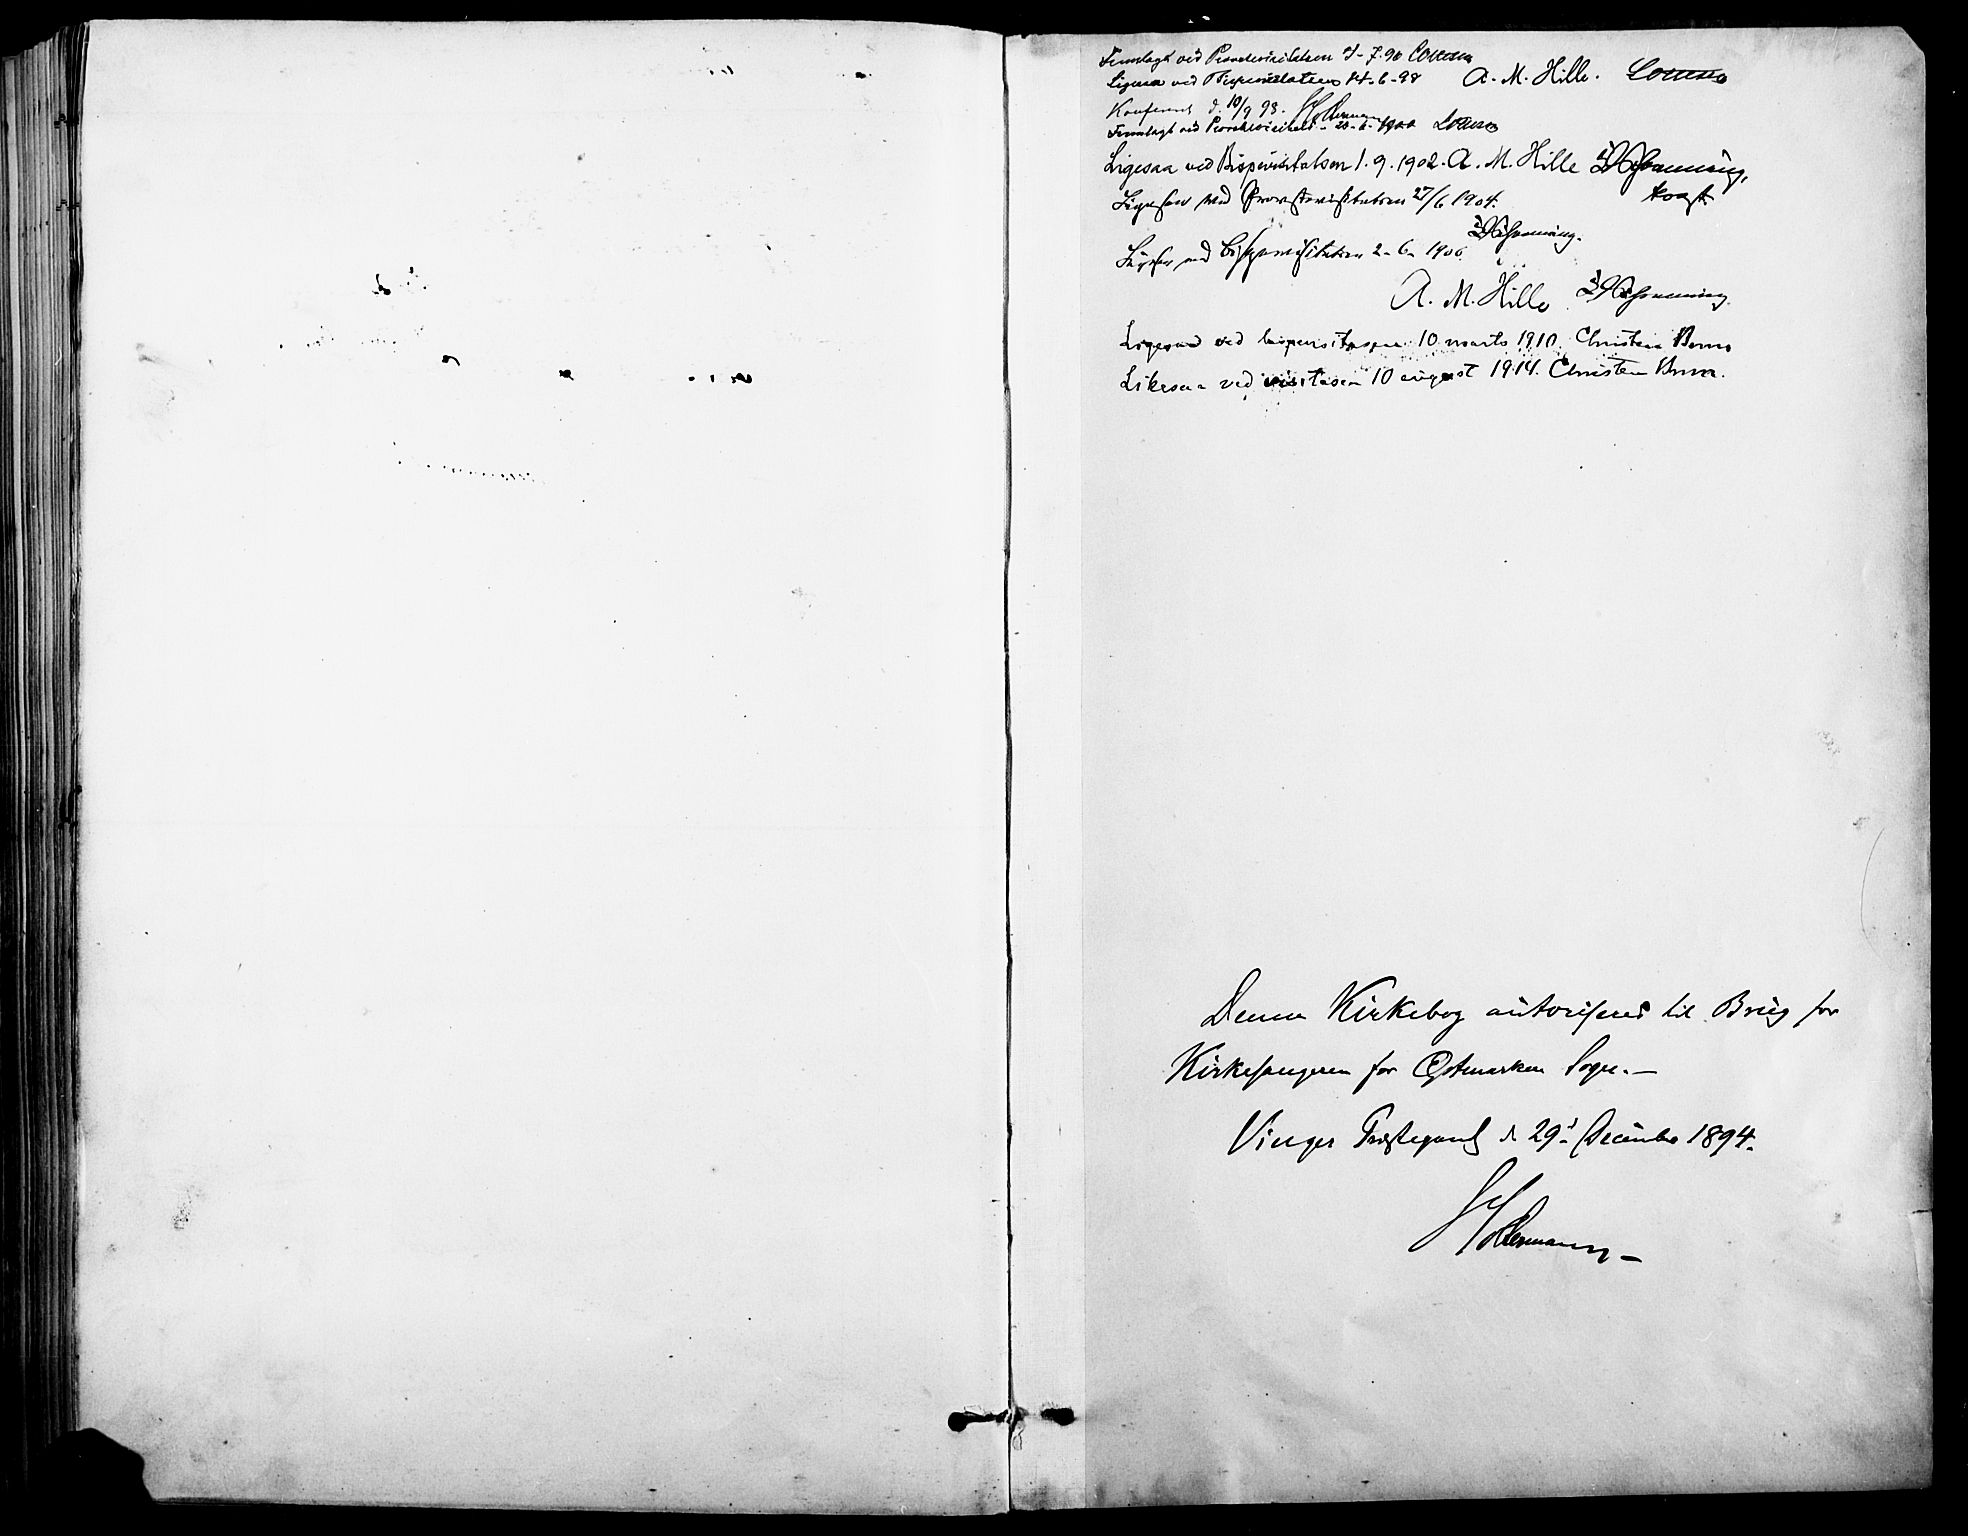 Fremlagt ved Provstevisitatsen 4-7-96
Ligesaa ved Bispevisitatsen 14-6-98 A. M. Hille.
Konfereret d. 10/9 98.
Fremlagt ved Provstevisitats - 20-6-1900
Ligesaa ved Bispevisitatsen 1.9.1902. A. M. Hille
Ligesaa ved Provstevisitatsen 27/6 1904.
Ligesaa ved Bispevisitatsen 2-6-1906.
A. M. Hille
Ligesaa ved bispevisitasen 10 marts 1910. Christen Brun
Likesaa ved visitasen 10 august 1914. Christen Brun.
Denne Kirkebog autoriseres til Brug for
Kirkesangeren for Østmarken Sogn.—
Vinger Præstegaard d. 29de December 1894.